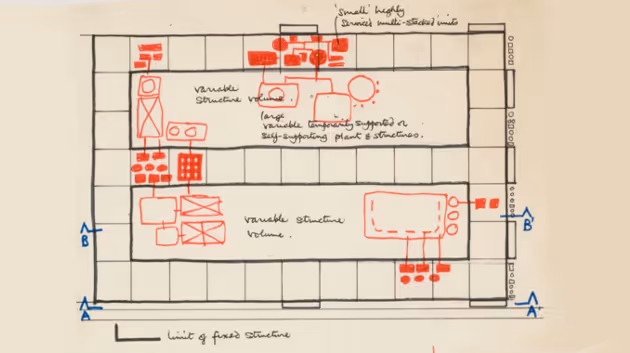 'small' highly
serviced multi-stacked units
variable
structure volume.
large
variable temporarily supported or
self-supporting plant & structures.
variable structure
volume.
B
B'
A
A'
limit of fixed structure